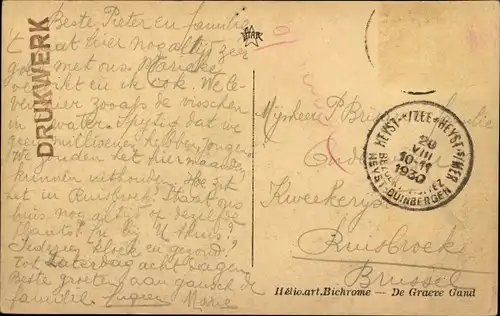 DRUKWERK
Star
Beste Pieter en familie
't gaat hier nog altijd zeer
goed met ons. Marieke
en ik ook. We le-
ven hier zooals de visschen
in 't water. Spijtig dat we
geen millioenen hebben, jongens
We zouden het hier maanden
kunnen uithouden. Hoe zit
het in Ruisbroek? Staat ons
huis nog altijd op dezelfde
plaats? En bij U thuis?
Iedereen kloek en gezond?
tot Zaterdag acht dagen
Beste groeten aan gansch de
familie. Marie
Mijnheer P. familie
Kweekerij
Ruisbroek
Brussel
HEYST A/ZEE * HEYST S/MER
20
VIII
10-11
1930
HEYST-DUINBERGEN
Hélio.art.Bichrome — De Graeve Gand